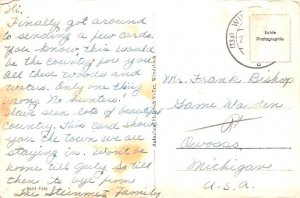 Hi.
Finally got around
to sending a few cards.
You know, this would
be the country for you.
All these woods and
waters. Only one thing
wrong No hunters.
Have seen lots of beautiful
country. This card shows
you the town we are
staying in. Won't be
home till July. So till
then its bye from
The Steinmetz Family
Echte
Photographie
Mr. Frank Bishop
Game Warden
Owosso,
Michigan
U.S.A.